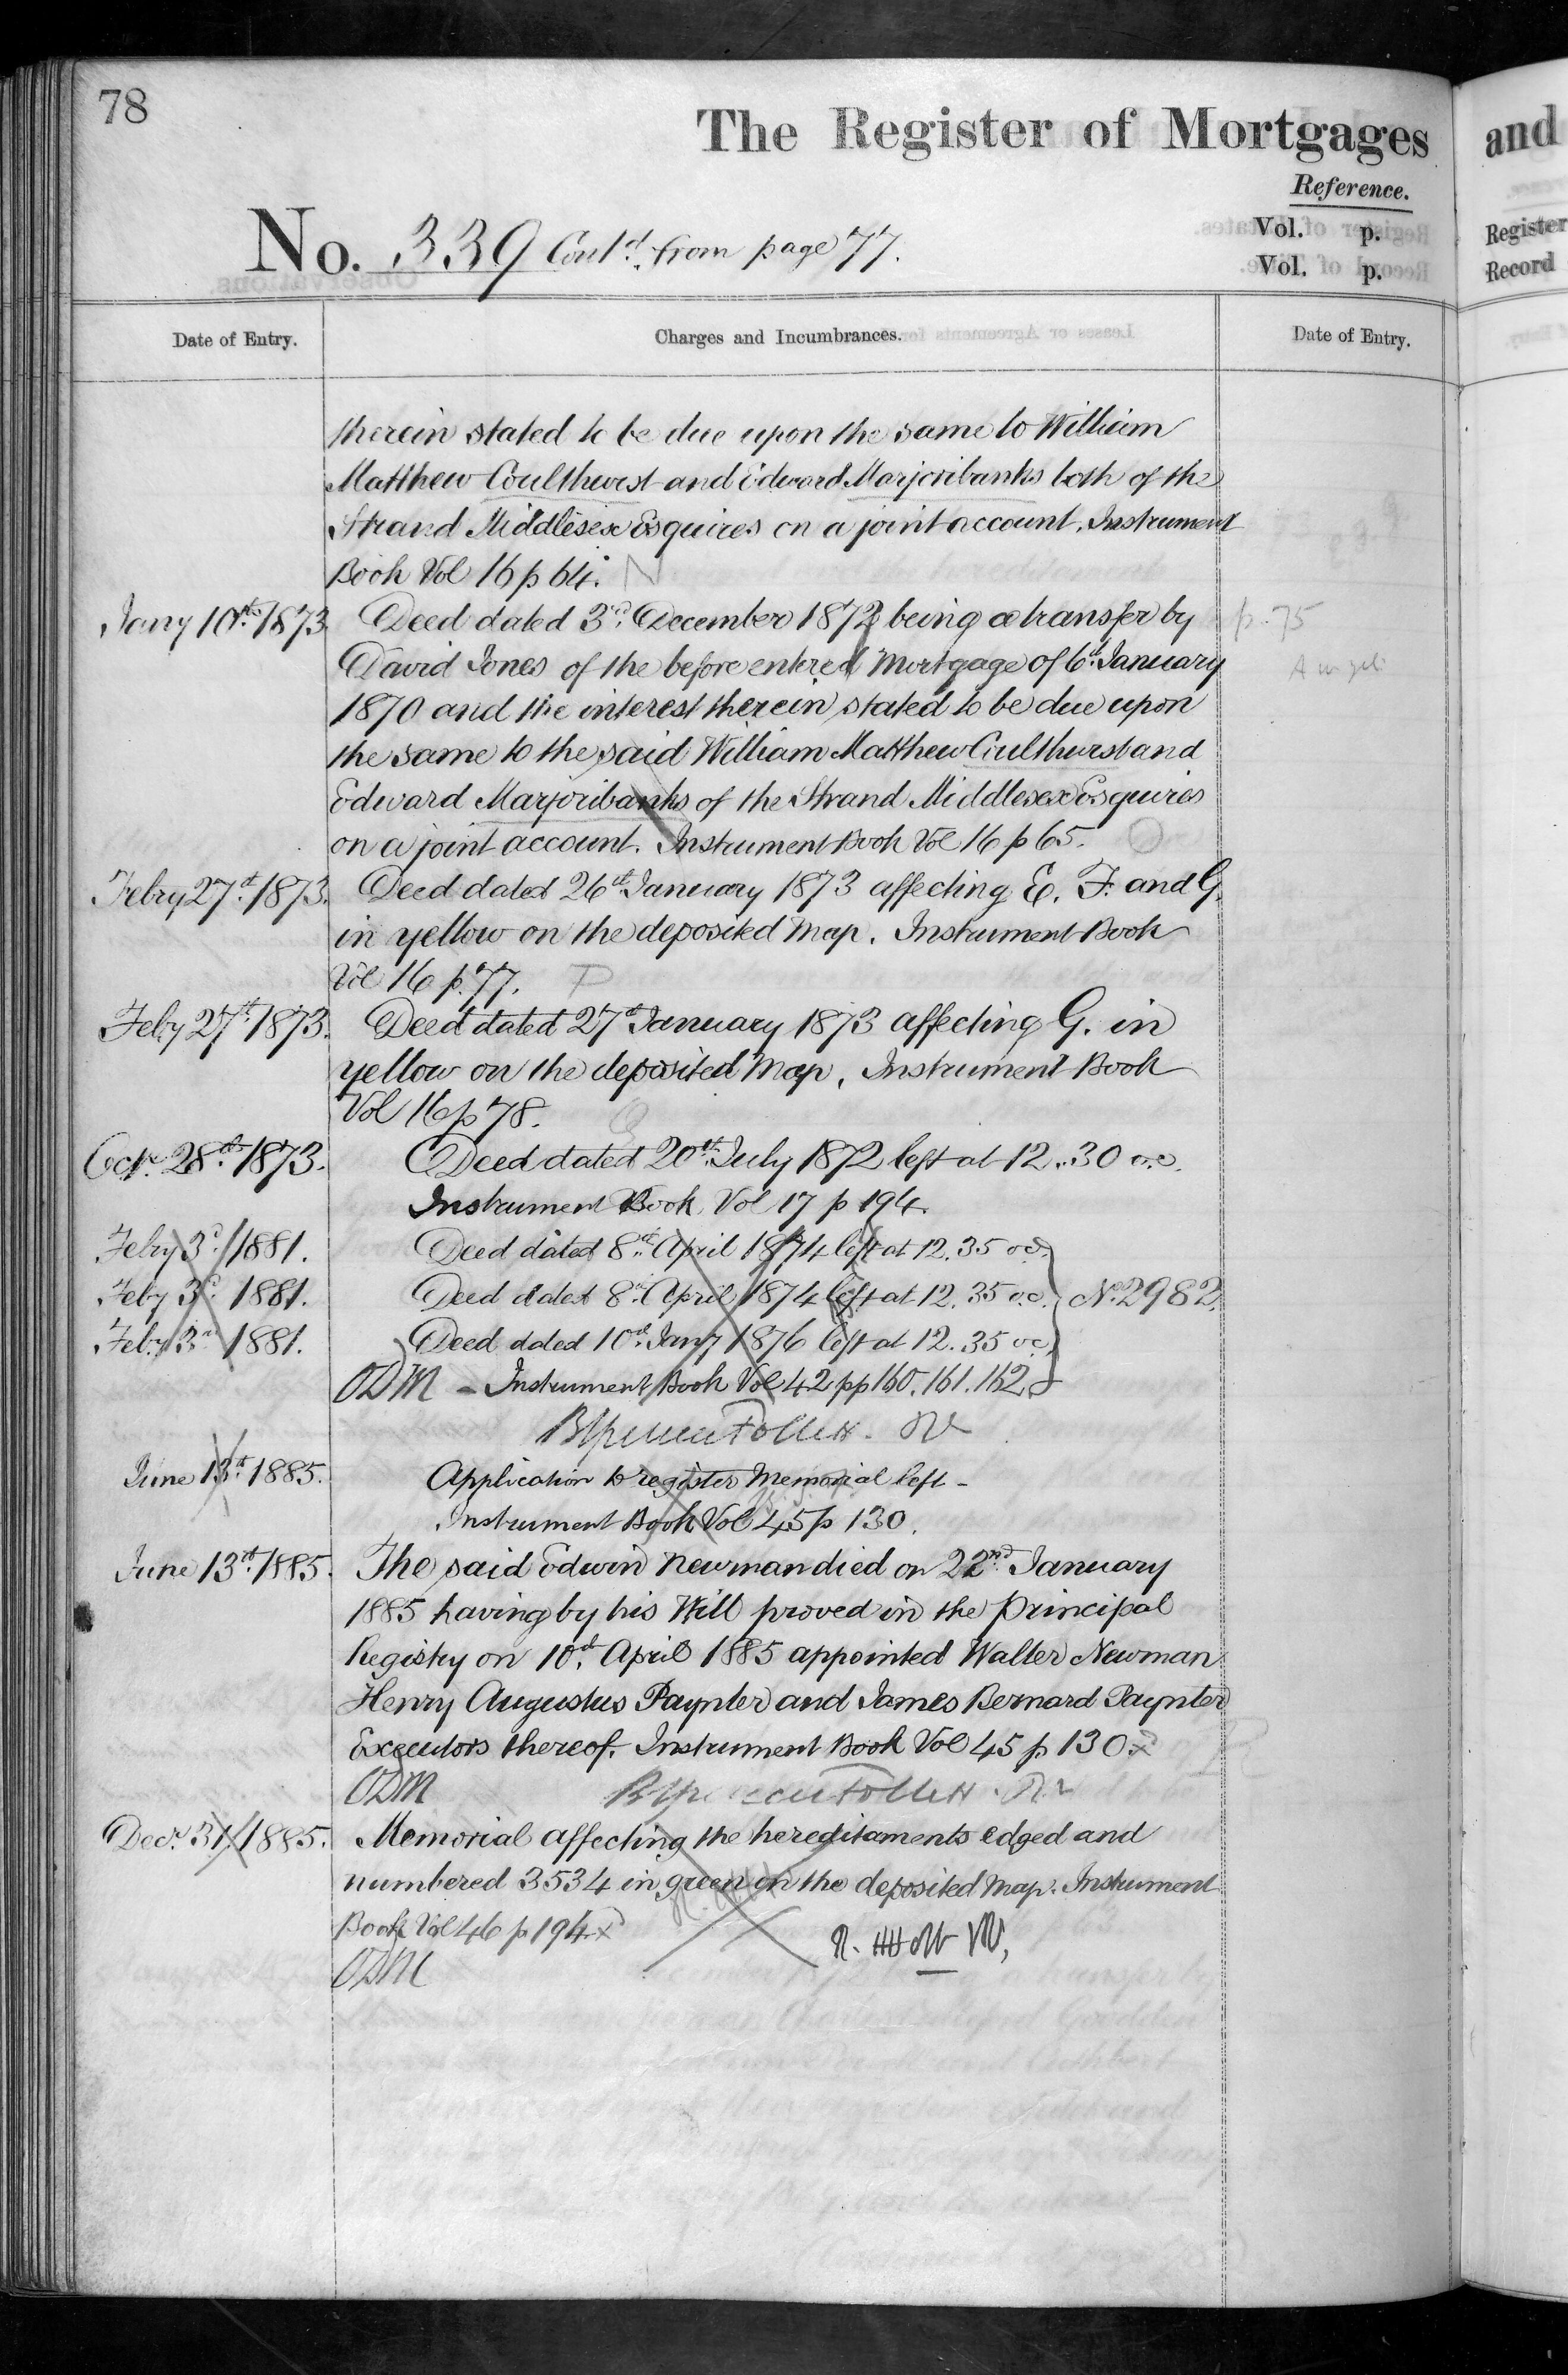 78
The Register of Mortgages
Reference.
Vol. p.
Vol. p.
No. 339 Cont.d from page 77.
Date of Entry.
Charges and Incumbrances.
Date of Entry.
therein stated to be due upon the same to William
Matthew Coulthurst and Edward Marjoribanks both of the
Strand Middlesex Esquires on a joint account. Instrument
Book Vol 16 p 64. N
Jany 10th 1873 Deed dated 3d December 1872 being a transfer by
p. 75
David Jones of the before entered Mortgage of 6th January
1870 and the interest therein stated to be due upon
the same to the said William Matthew Coulthurst and
Edward Marjoribanks of the Strand Middlesex Esquires
on a joint account. Instrument Book Vol 16 p 65. O
Febry 27th 1873. Deed dated 26th January 1873 affecting E. F. and G.
in yellow on the deposited Map. Instrument Book
Vol 16 p. 77. P
Feby 27th 1873. Deed dated 27th January 1873 affecting G. in
yellow on the deposited Map. Instrument Book
Vol 16 p 78. Q
Octr. 28th 1873. Deed dated 20th July 1872 left at 12..30 o.c.
Instrument Book Vol 17 p 194.
Febry 3d 1881. Deed dated 8th April 1874 left at 12.35 o.c.
Feby 3d 1881. Deed dated 8th April 1874 left at 12.35 o.c. No. 2982.
Feby 3rd 1881. Deed dated 10th Jany 1876 left at 12.35 o.c.
ODM - Instrument Book Vol 42 pp 160. 161. 162.
June 13th 1885. Application to register Memorial left -
Instrument Book Vol 45 p 130.
June 13th 1885. The said Edwin Newman died on 22nd January
1885 having by his Will proved in the Principal
Registry on 10th April 1885 appointed Walter Newman
Henry Augustus Paynter and James Bernard Paynter
Executors thereof. Instrument Book Vol 45 p 130 x
R
ODM
Decr. 31 1885. Memorial affecting the hereditaments edged and
numbered 3534 in green on the deposited Map. Instrument
Book Vol 46 p 194 x
ODM
and
Register
Record